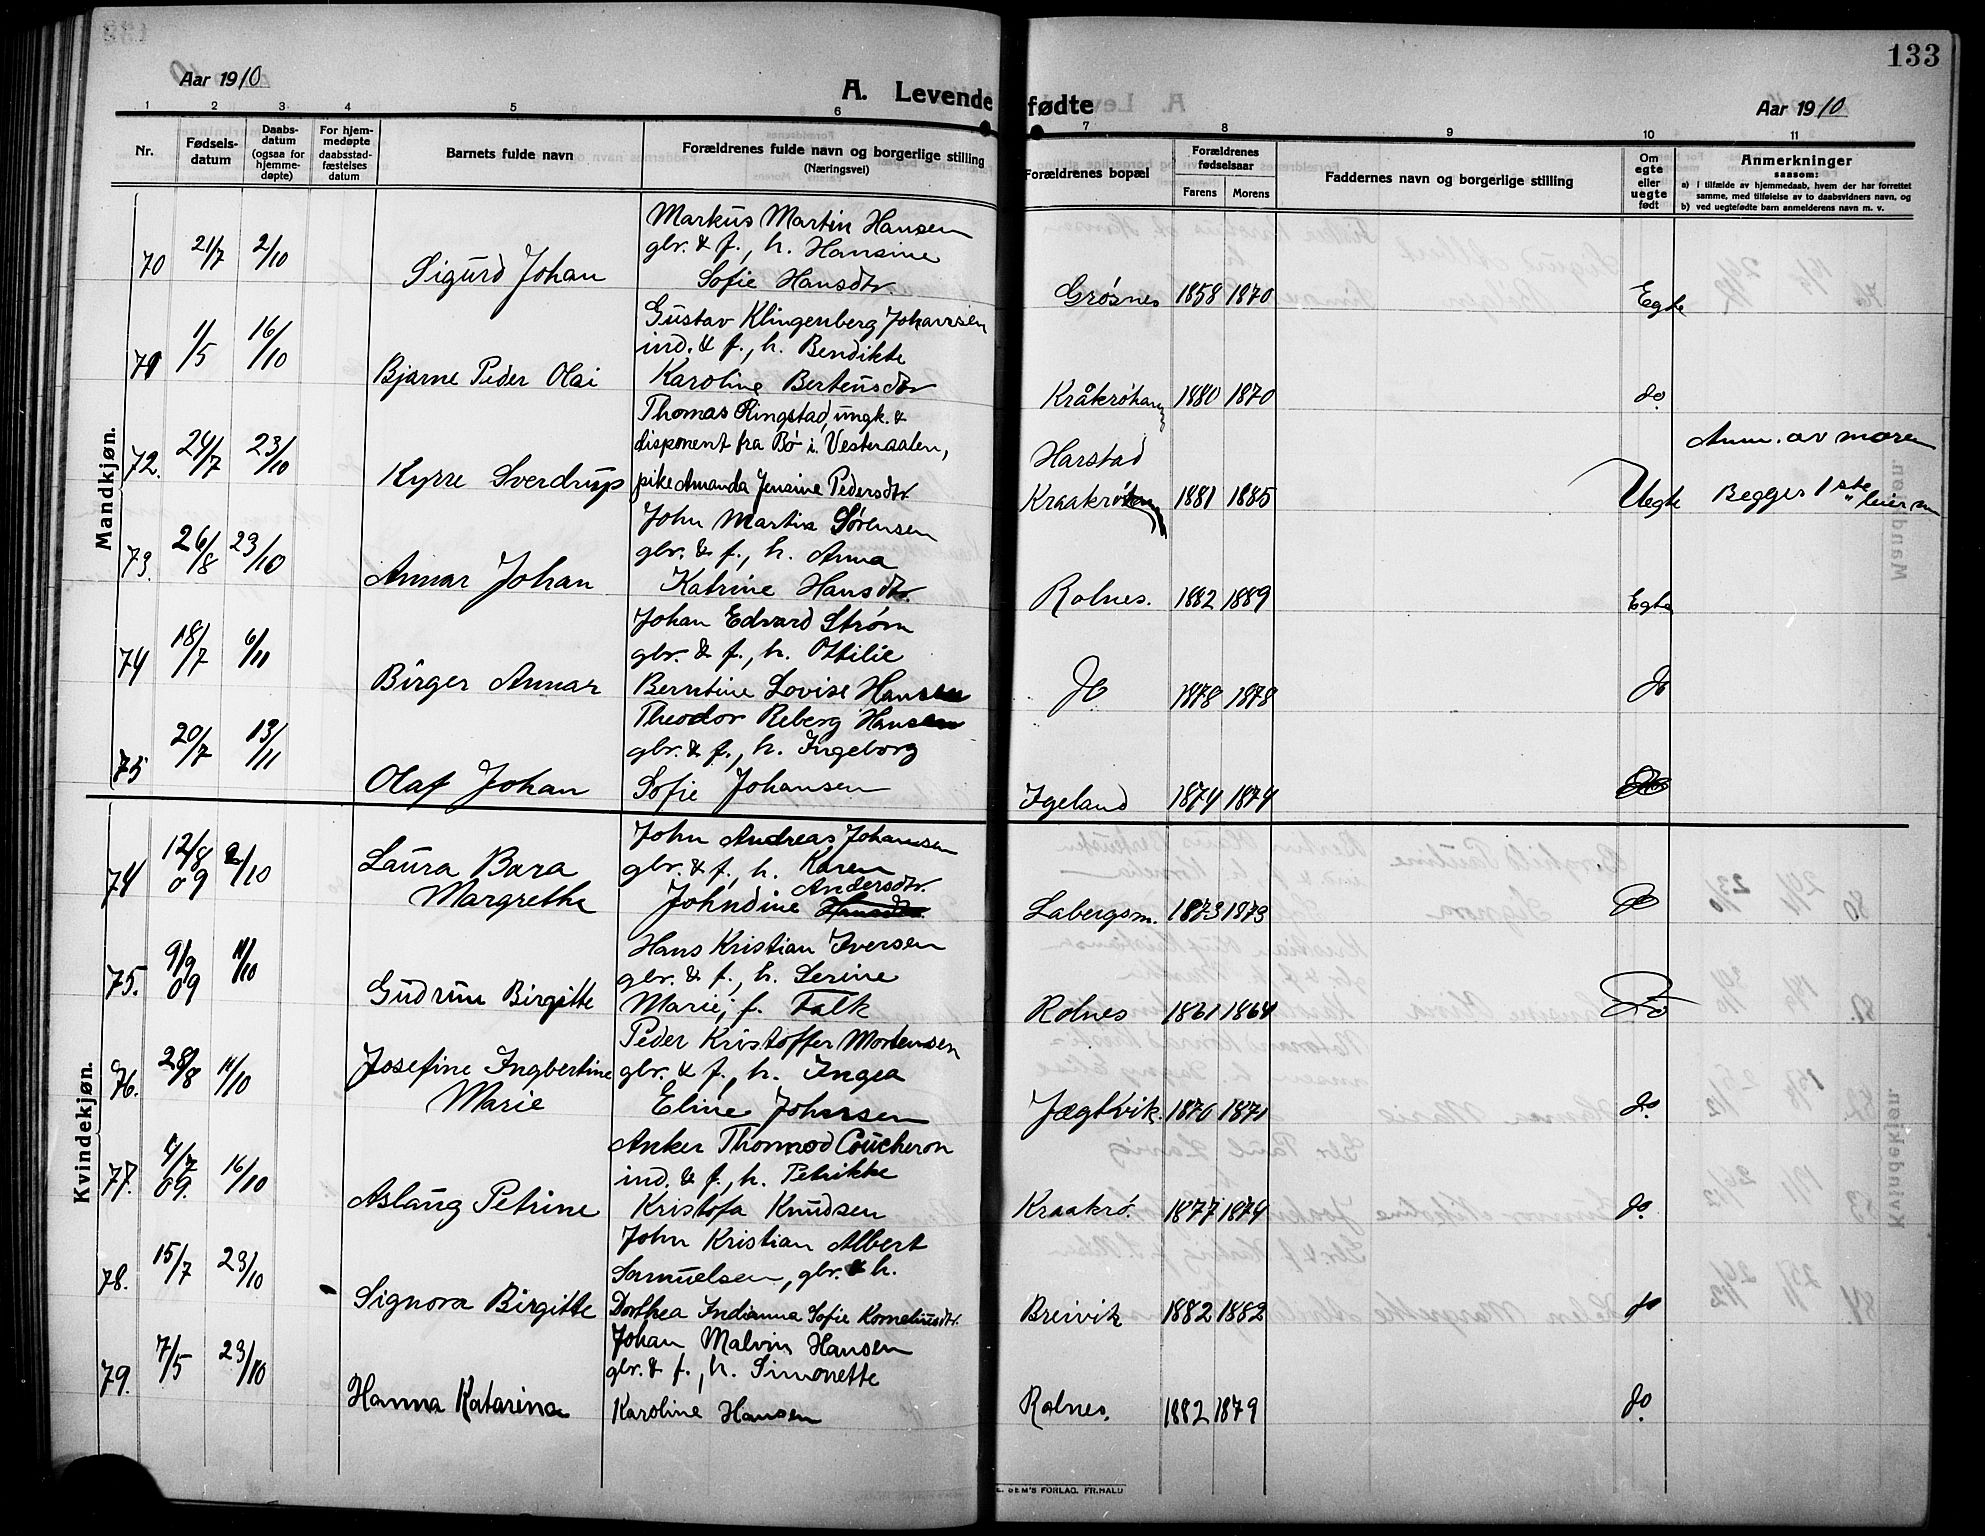 133
Aar 1910
A. Levende fødte
Aar 1910
1 2 3 4 5 6 7 8 9 10 11
Nr.
Fødsels-
datum
Daabs-
datum
(ogsaa for
hjemme-
døpte)
For hjem-
medøpte
daabsstad-
fæstelses
datum
Barnets fulde navn
Forældrenes fulde navn og borgerlige stilling
(Næringsvei)
Forældrenes bopæl
Forældrenes
fødselsaar
Farens Morens
Faddernes navn og borgerlige stilling
Om
egte
eller
uegte
født
Anmerkninger
saasom:
a) i tilfælde av hjemmedaab, hvem der har forrettet
samme, med tilføielse av to daabsvidners navn, og
b) ved uegtefødte barn anmelderens navn m. v.
Mandkjøn.
Markus Martin Hansen
gbr. & f., h. Hansine
70 21/7 2/10 Sigurd Johan Sofie Hansdtr Grøsnes 1858 1870 Egte
Gustav Klingenberg Johansen
ind. & f., h. Bendikte
71 1/5 16/10 Bjarne Peder Olai Karoline Berteusdtr Kråkrøhamn 1880 1870 do.
Thomas Ringstad, ungk. &
disponent fra Bø i Vesteraalen, Harstad Anm. av moren
72. 24/7 23/10 Kyrre Sverdrup pike Amanda Jensine Pedersdtr. Kraakrøhamn 1881 1885 Uegte Begges 1ste leierm
John Martin Sørensen
gbr. & f., h. Anna
73. 26/8 23/10 Annar Johan Katrine Hansdtr. Rolnes. 1882 1889 Egte
Johan Edvard Strøm
gbr. & f., h. Ottilie
74 18/7 6/11 Birger Annar Berntine Lovise Hansen do 1878 1878 do
Theodor Reberg Hansen
gbr. & f., h. Ingeborg
75 20/7 13/11 Olaf Johan Sofie Johansen Igeland 1874 1874 do
Kvindekjøn.
John Andreas Johansen
74 12/8 09 2/10 Laura Bara gbr. & f., h. Karen
Margrethe Johndine Andersdtr. Hansdtr. Labergsm. 1873 1873 do
Hans Kristian Iversen
gbr. & f., h. Serine
75. 9/9 09 11/10 Gudrun Birgitte Marie, f. Falk Rolnes 1861 1864 do
Peder Kristoffer Mortensen
76. 28/8 11/10 Josefine Ingbertine gbr. & f., h. Ingea
Marie Eline Johansen Jægtvik. 1870 1871 do.
Anker Thormod Coucheron
ind. & f., h. Petrikke
77. 4/7 09. 16/10 Aslaug Petrine Kristofa Knudsen Kraakrø. 1877 1874 do.
John Kristian Albert
Samuelsen, gbr. & h.
78. 15/7 23/10 Signora Birgitte Dorthea Indianna Sofie Korneliusdtr. Breivik 1882 1882 do
Johan Malvin Hansen
gbr. & f., h. Simonette
79. 7/5 23/10 Hanna Katarina Karoline Hansen Rolnes. 1882 1879 do.
SEM'S FORLAG. FR.HALD